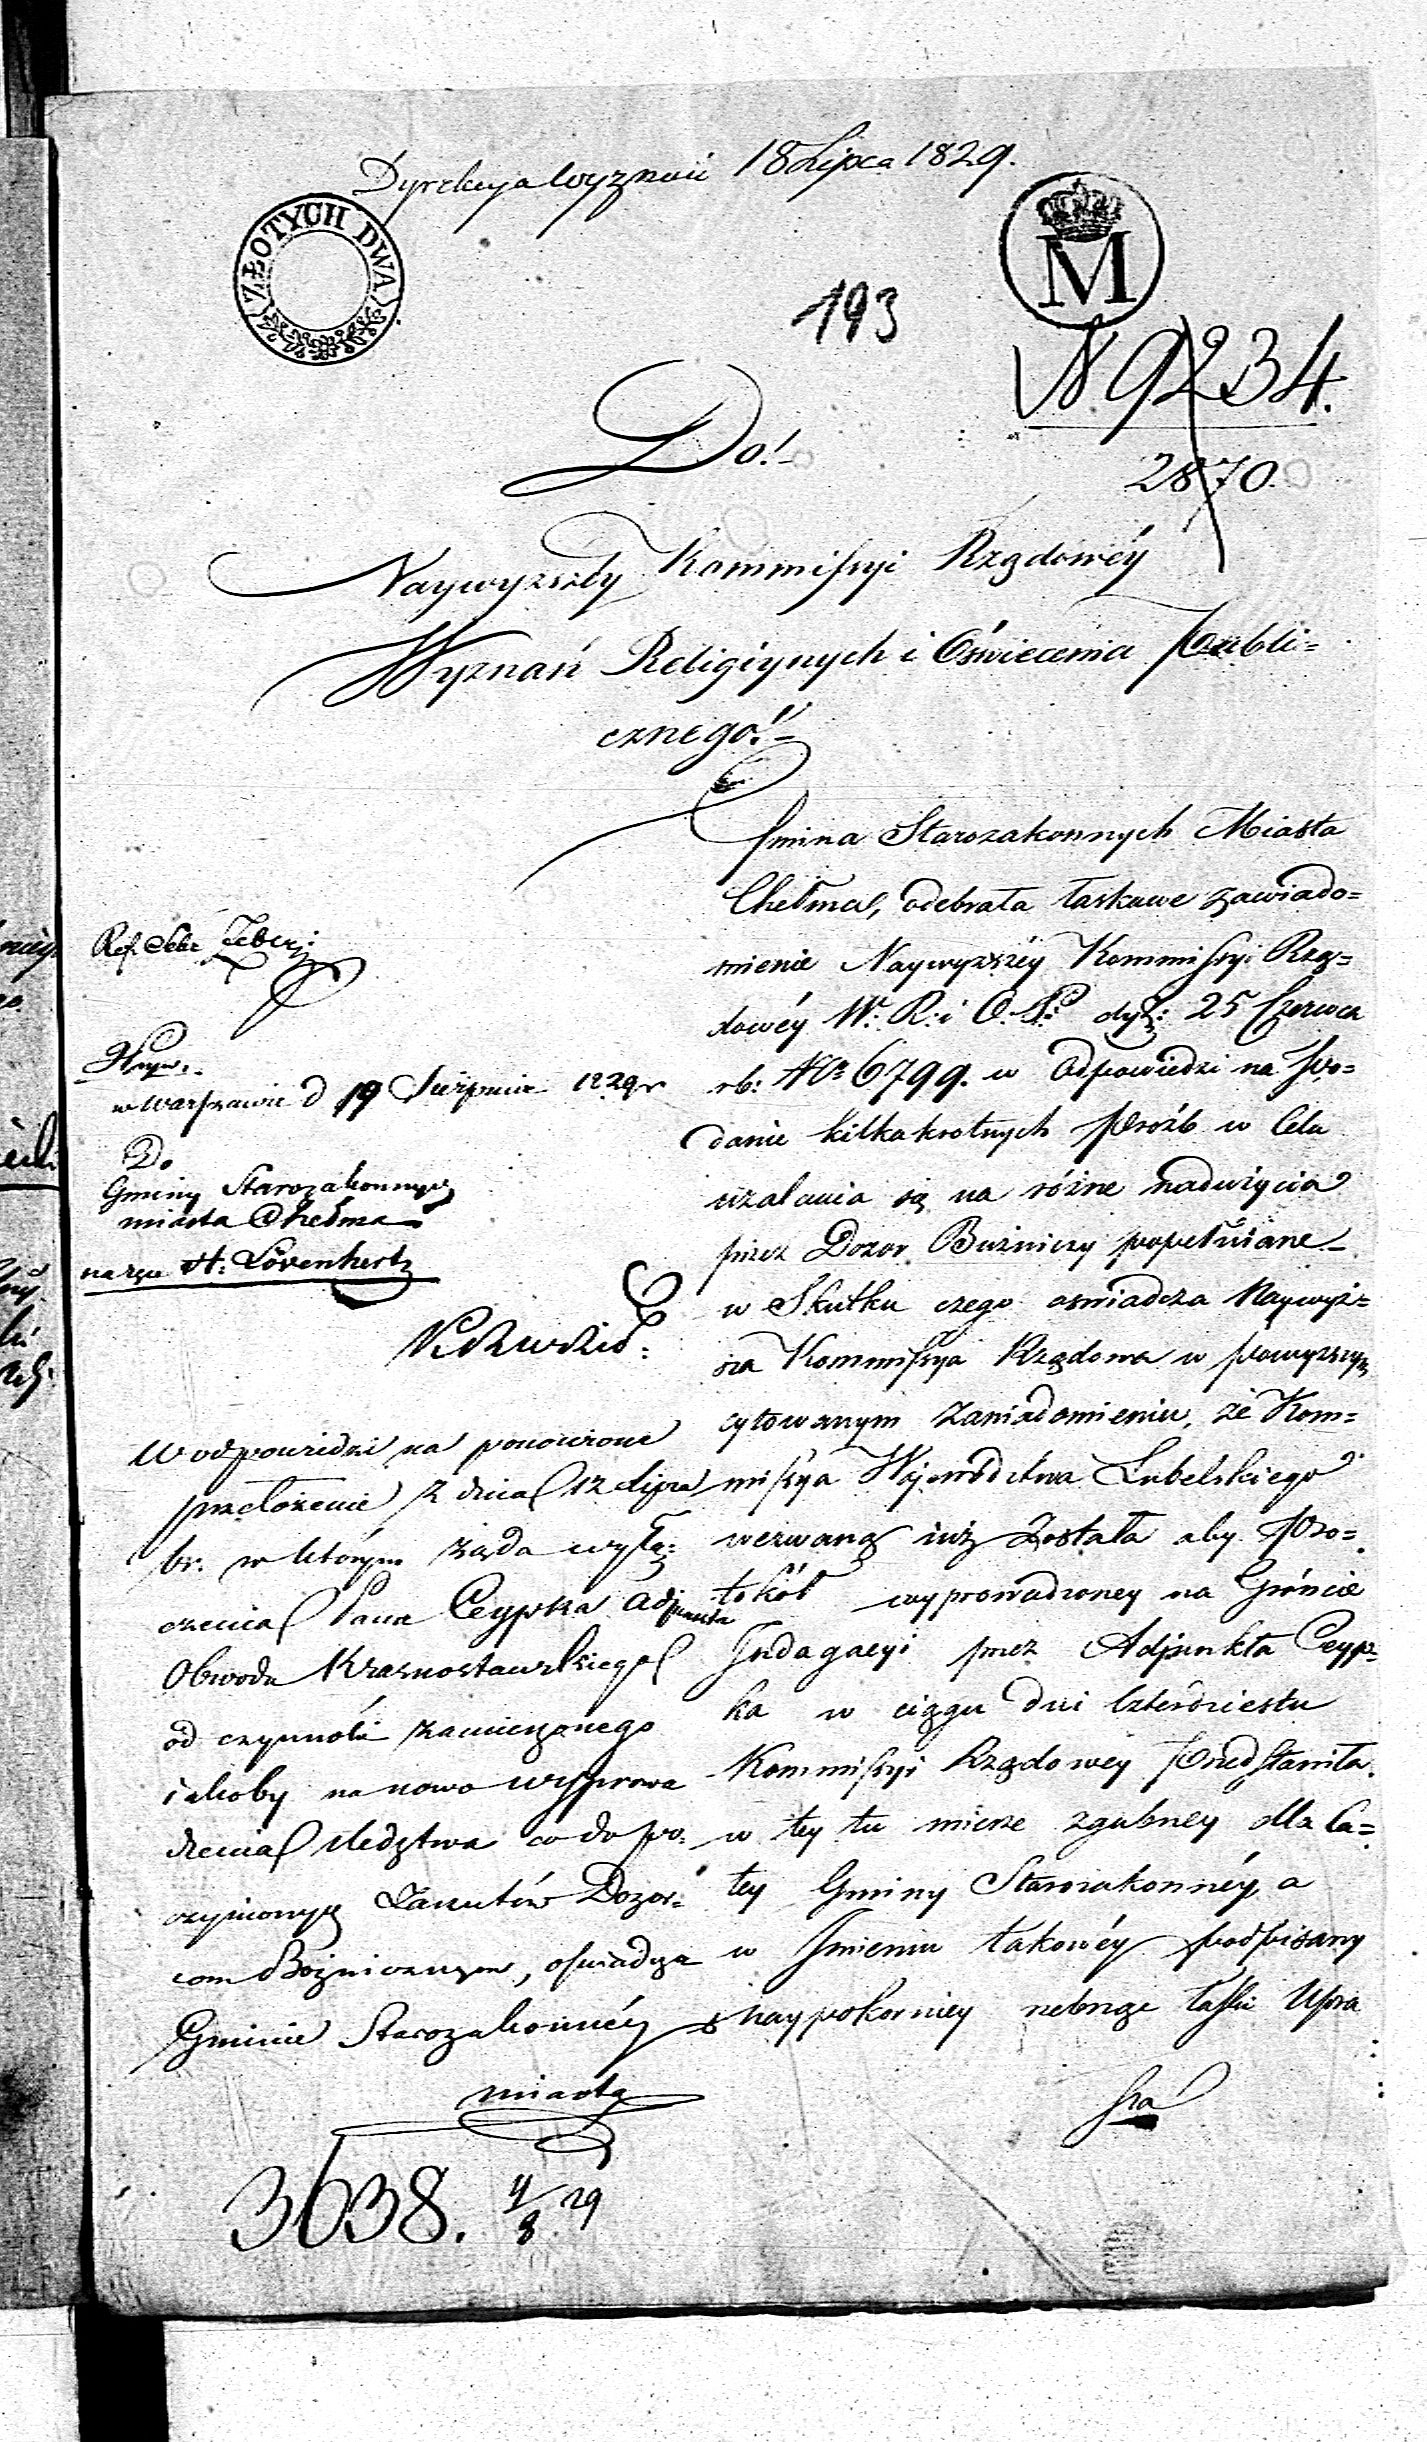 Dyrekcya Wyznań 18 Lipca 1829.
ZŁOTYCH DWA
M
193
N 9234.
2870.
Do!
Naywyzszéy Kommissyi Rządowéy
Wyznań Religiynych i Oświecenia Publi=
cznego!
Gmina Starozakonnych Miasta
Chełma, odebrała łaskawe zawiado=
mienie Naywyzszéy Kommissyi Rzą=
dowéy W. R. i O. P. 25 Czerwca
rb: No 6799. w odpowiedzi na po=
danie kilkakrotnych próźb w Celu
uzalania się na różne nadużycia
przez Dozor Bużniczy popełniane
w Skutku czego oswiadcza Naywyż=
sza Kommissya Rządowa w powyzszym
cytowanym zawiadomieniu, że Kom=
missya Wojewodztwa Lubelskiego
wezwaną iuż Została aby Pro=
tokół wyprowadzoney na Gróncie
Indagacyi przez Adjunkta Ceyp=
ka w ciągu dni Czterdziestu
Kommissyi Rządowéy Przedstawiła.
w tey tu mierze zgubney dla ca=
łey Gminy Starozakonnéy a
w Jmieniu takowéy podpisany
naypokorniey łaski Upra
sza
Ref. Sekr
w Warszawie d 19 Sierpnia 1829 r
Do
Gminy Starozakonnych
miasta Chełma
na ręce H: Lövenhertz
W odpowiedzi na ponowione
przełożenie z dnia 12 Lipca
br. w którym żąda wyłą=
czenia Pana Ceypka Adjunkta
Obwodu Krasnostawskiego
od czynności zamierzonego
iakoby na nowo wyprowa
dzenia śledztwa co do po=
czynionych Zarzutów Dozor=
com Bożniczym, oświadcza
Gminie Starozakonnéy
miasta
3638. 4/8 29